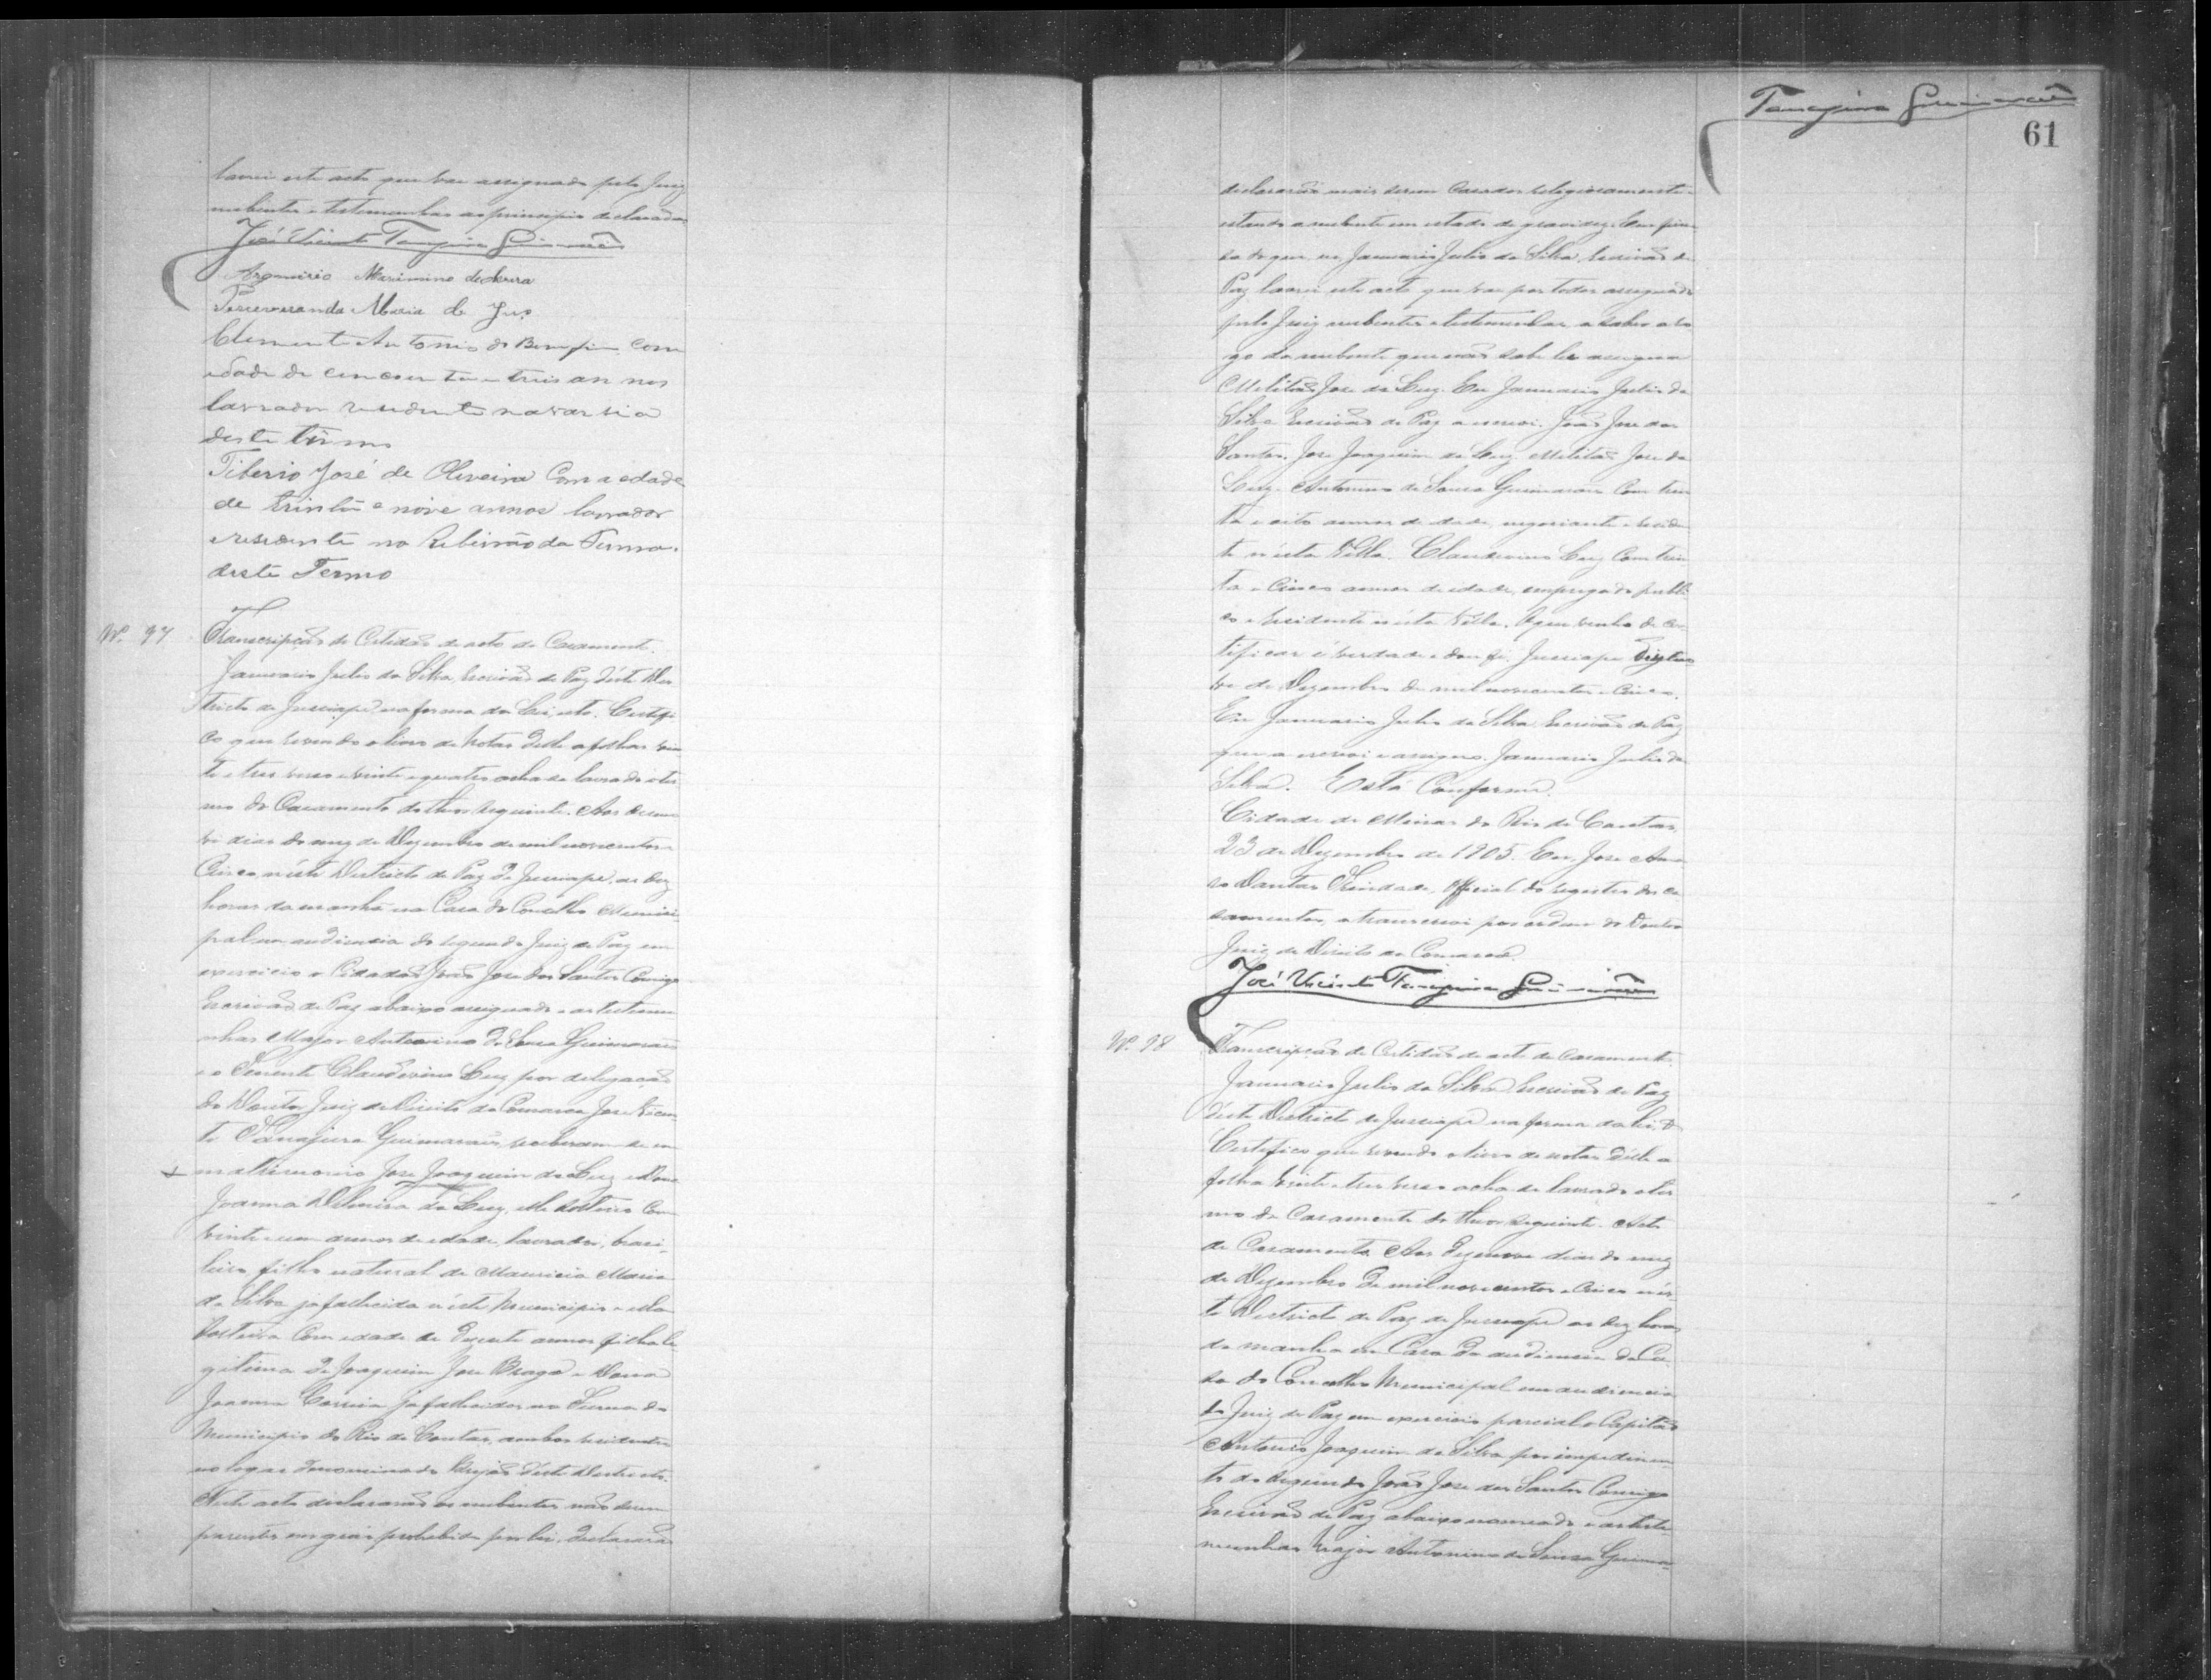 lavrei este acto que vae assignado pelo Juiz
nubentes e testemunhas ao principio declarados
José Vicente Tanajura Guimarães
Argemiro Maximino
Maria de Jus
Clemente Antonio do Bomfim com
edade de cincoenta e treis annos
lavrador residente na varsia
deste termo
Tiberio José de Oliveira Com a edade
de trinta e nove annos lavrador
e residente no Ribeirão da Furna.
deste Termo
Nº 97 Transcripção de Certidão de acto de Casament.
Januario Julio da Silva, Escrivão de Paz d'este Dis
tricto de Jussiape na forma da Lei, etc. Certifi
co que revendo o livro de notas delle a folhas vin
te e tres verso e vinte e quatro acha-se lavrado o ter
mo de Casamento do theor seguinte. Aos deseno
ve dias do mez de Dezembro de mil novecentos e
Cinco, n'este Districto de Paz de Jussiape, as dez
horas da manhã na Casa do Conselho Munici
pal em audiencia do segundo Juiz de Paz em
exercicio o Cidadão João Jose dos Santos Comigo
Escrivão de Paz abaixo assignado e as testemu
nhas Major Antonino de Sousa Guimaraes
e o Tenente Claudivino Luz por delegação
do Doutor Juiz de Direito da Comarca Jose Vicen
te Tanajura Guimarães, receberam-se em
matrimonio Jose Joaquim da Luz e Dona
Joanna da Luz, elle solteiro Com
vinte e um annos de edade, lavrador, brasi
leiro filho natural de Mauricia Maria
da Silva ja fallecida n'este Municipio e ella
solteira Com edade de desesete annos filha le
gitima de Joaquim Jose Braga e Dona
Joanna Correia ja fallecidos na Furna do
Municipio do Rio de Contas, ambos residentes
no logar denominado Brejão d'este Districto.
N'este acto declararão os nubentes não serem
parentes em grão prohibido por lei, declararão
Tanajura Guimarães
61
declararão mais serem Casados religiosamente
estando a nubente em estado de gravidez. Em firme
sa do que eu Januario Julio da Silva, Escrivão de
Paz lavrei este acto que vae por todos assignado
pelo Juiz nubentes e testemunhas a saber a ro
go da nubente que não sabe ler assigna
Militão Jose da Luz. Eu Januario Julio da
Silva Escrivão de Paz o escrevi. João Jose dos
Santos. Jose Joaquim da Luz. Militão Jose da
Luz. Antonino de Sousa Guimaraes Com trin
ta e oito annos de edade, negociante e residen
te n'esta Villa. Claudivino Luz Com trin
ta e Cinco annos de edade, empregado publi
co e residente n'esta Villa. O que venho de cer
tificar é verdade e dou fé. Jussiape
ve de Dezembro de mil novecentos e cinco.
Eu Januario Julio da Silva Escrivão de Paz
que a escrevi e assigno. Januario Julio da
Silva. Está Conforme.
Cidade de Minas do Rio de Contas,
23 de Dezembro de 1905. Eu, Jose
Dantas Trindade, Official do registro dos ca
samentos, o transcrevi por ordem do Doutor
Juiz de Direito da Comarca.
José Vicente Tanajura Guimarães
Nº 98 Transcripção de Certidão de acto de Casamento.
Januario Julio da Silva Escrivão de Paz
d'este Districto de Jussiape na forma da lei, &
Certifico que revendo o livro de notas d'elle a
folha vinte e tres verso acha-se lavrado o ter
mo de Casamento do theor seguinte. Acto
de Casamento. Aos desenove dias do mez
de Dezembro de mil novecentos e Cinco n'es
te Districto de Paz de Jussiape as dez horas
da manhã na Casa da audiencia da Ca
sa do Conselho Municipal em audiencia
do Juiz de Paz em exercicio parcial o Capitão
Antonio Joaquim da Silva por impedimen
to do segundo João Jose dos Santos Comigo
Escrivão de Paz abaixo nomeado e as teste
munhas Major Antonino de Sousa Guima-